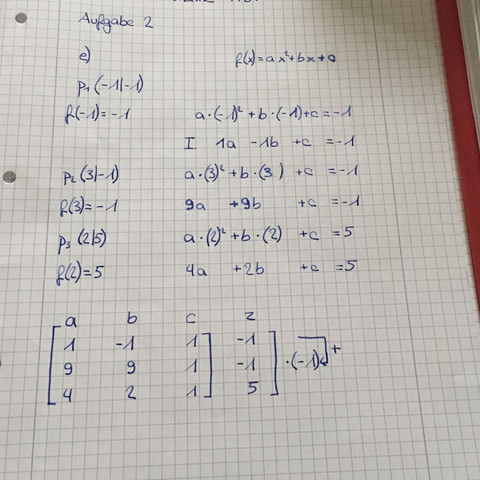 Aufgabe 2
e) f(x)=ax²+bx+c
P₁ (-1|-1)
f(-1)=-1 a·(-1)²+b·(-1)+c=-1
I 1a -1b +c =-1
P₂ (3|-1) a·(3)²+b·(3) +c =-1
f(3)=-1 9a +9b +c =-1
P₃ (2|5) a·(2)²+b·(2) +c =5
f(2)=5 4a +2b +c =5
a b c z
1 -1 1 -1 ·(-1) +
9 9 1 -1
4 2 1 5